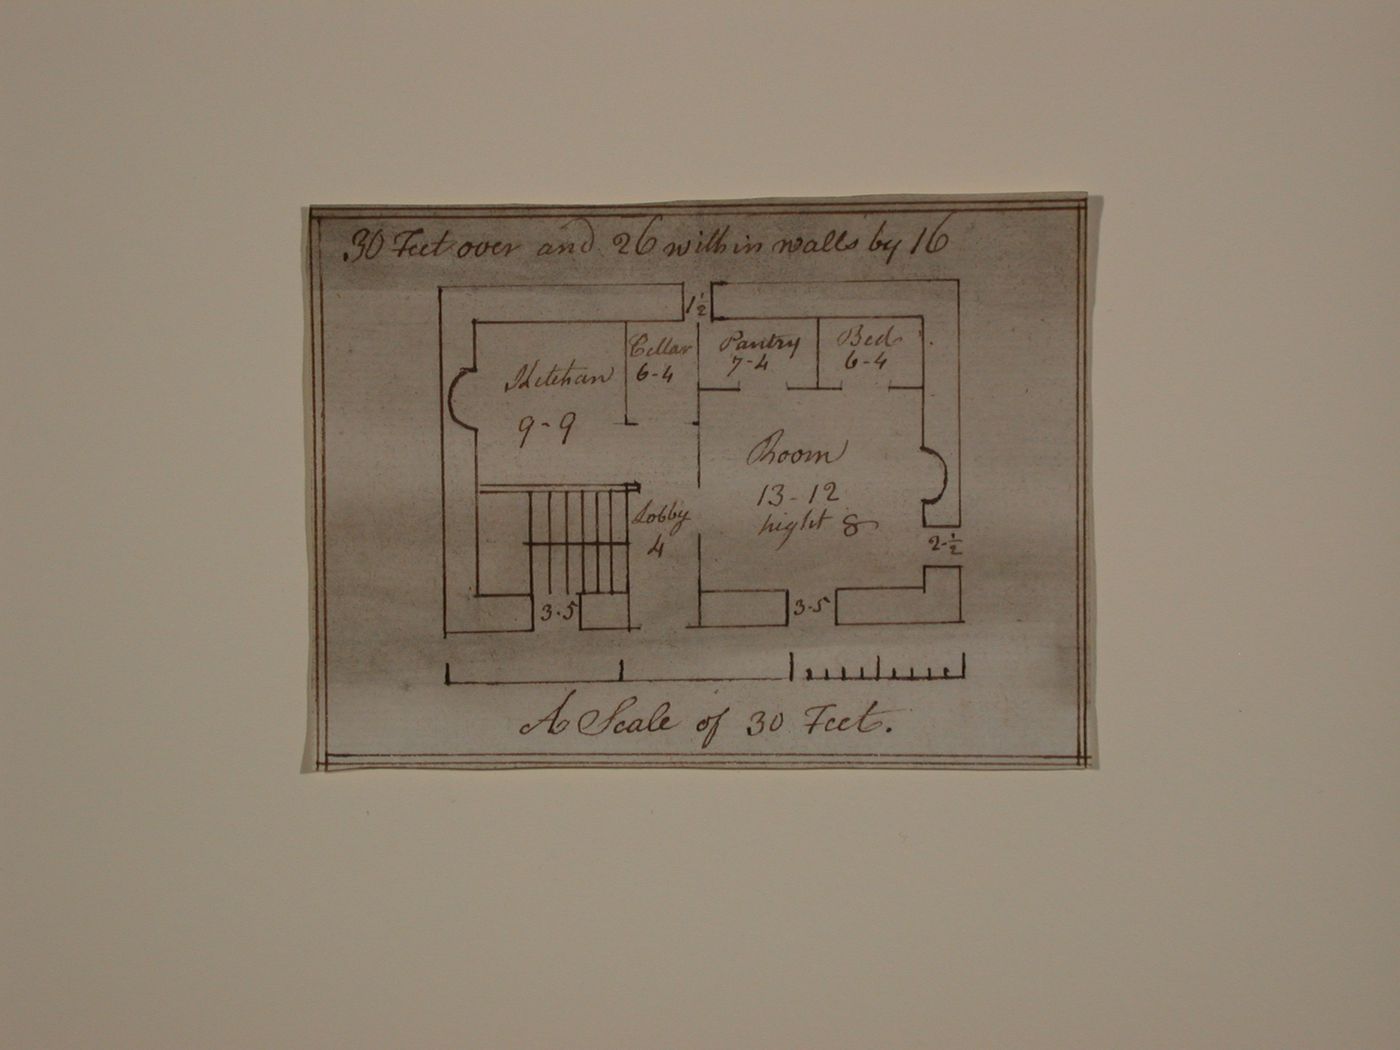 30 Feet over and 26 within walls by 16
1 1/2
Kitchan
9-9
Cellar
6-4
Pantry
7-4
Bed
6-4
Room
13-12
hight 8
Lobby
4
2-1/2
3-5
3-5
A Scale of 30 Feet.